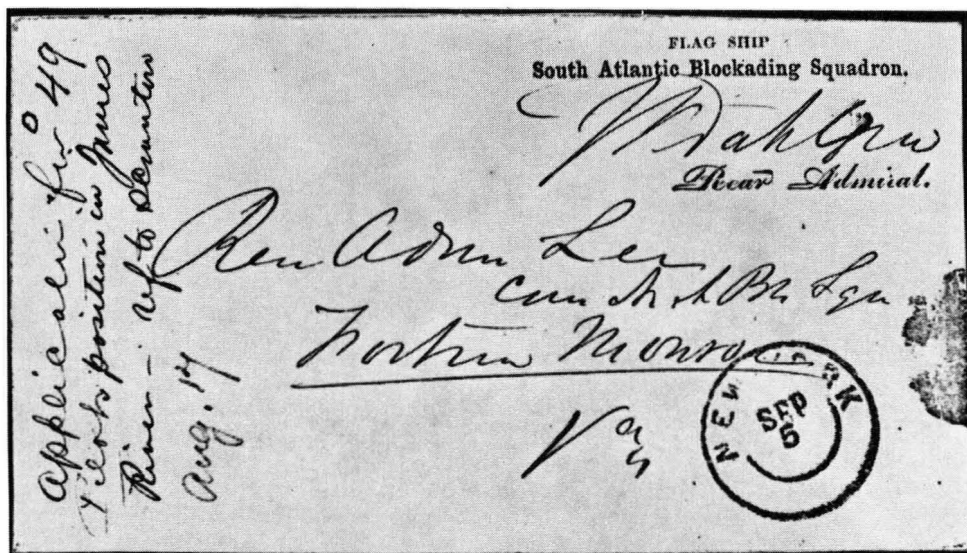 FLAG SHIP
South Atlantic Blockading Squadron.
Dahlgren
Rear Admiral.
Rear Adm Lee
Com N A Bk Sqn
Fortress Monroe
Va
NEW YORK
SEP
5
for 49
position in James
River – ref to Scranton
Aug. 17